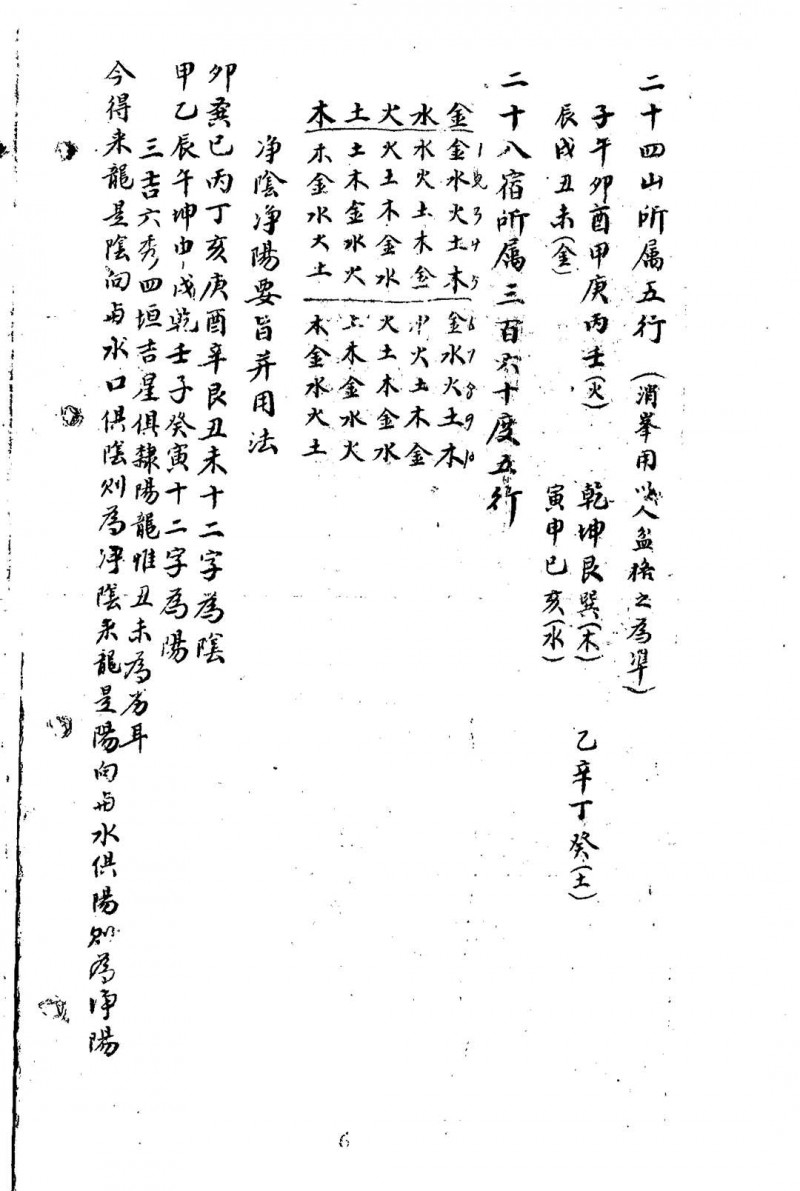 二十四山所属五行 (消峯用以人盆格之為準)
子午卯酉甲庚丙壬(火) 乾坤艮巽(木) 乙辛丁癸(土)
辰戌丑未(金) 寅申巳亥(水)
二十八宿所属三百六十度五行
1 2 3 4 5 6 7 8 9 10
金 金水火土木 金水火土木
水 水火土木金 水火土木金
火 火土木金水 火土木金水
土 土木金水火 土木金水火
木 木金水火土 木金水火土
净陰净陽要旨并用法
卯巽巳丙丁亥庚酉辛艮丑未十二字為陰
甲乙辰午坤申戌乾壬子癸寅十二字為陽
三吉六秀四垣吉星俱隸陽龍惟丑未為劣耳
今得来龍是陰向与水口俱陰则為净陰来龍是陽向与水俱陽则為净陽
6